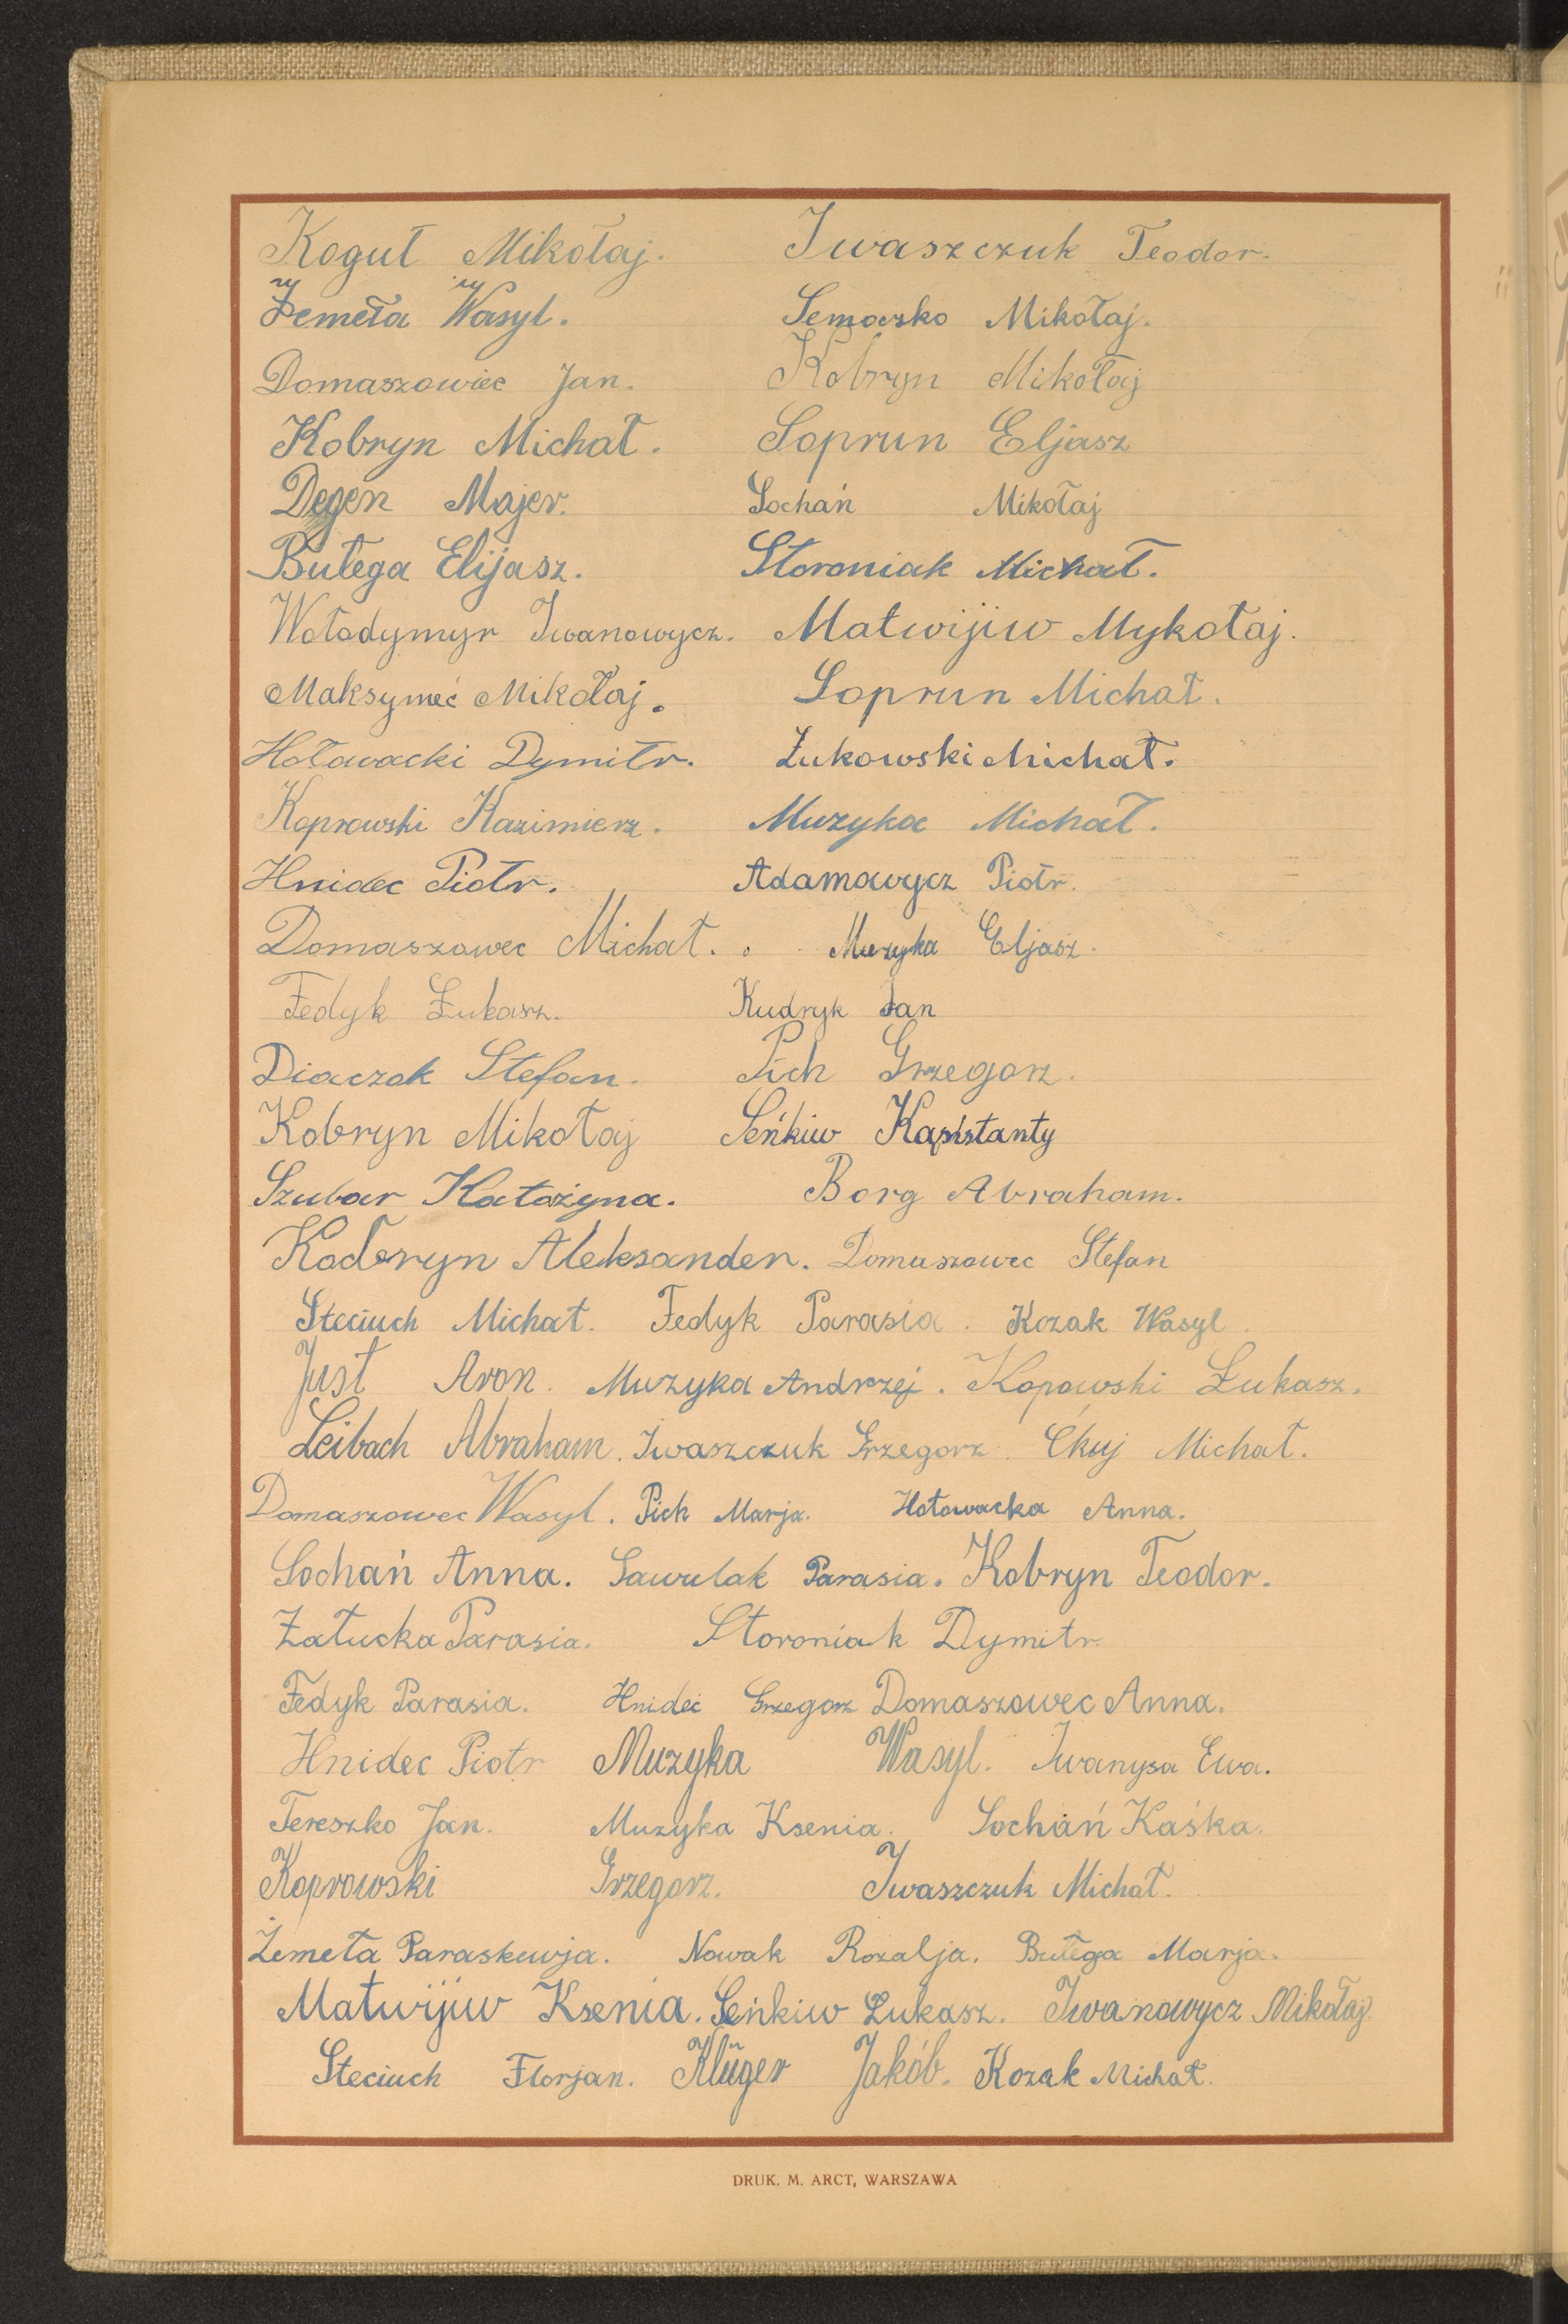 Kogut Mikołaj. Iwaszczuk Teodor.
Żemeła Wasyl. Semoczko Mikołaj.
Domaszowiec Jan. Kobryn Mikołaj
Kobryn Michał. Soprun Eljasz
Degen Majer. Sochań Mikołaj
Butega Elijasz. Storoniak Michał.
Wołodymyr Iwanowycz. Matwijiw Mykołaj.
Maksymeć Mikołaj. Soprun Michał.
Hołowacki Dymitr. Żukowski Michał.
Koprowski Kazimierz. Muzyka Michał.
Hnidec Piotr. Adamowycz Piotr.
Domaszowec Michał. Muzyka Eljasz.
Fedyk Łukasz. Kudryk Jan
Diaczok Stefan. Pich Grzegorz.
Kobryn Mikołaj Seńkiw
Szubar Katażyna. Borg Abraham.
Aleksander. Domaszowec Stefan
Steciuch Michał. Fedyk Parasia. Kozak Wasyl.
Just Aron. Muzyka Andrzej. Kopowski Łukasz.
Leibach Abraham. Iwaszczuk Grzegorz. Ćkuj Michał.
Domaszowec Wasyl. Pich Marja. Hołowacka Anna.
Sochań Anna. Sawulak Parasia. Kobryn Teodor.
Załucka Parasia. Storoniak Dymitr.
Fedyk Parasia. Hnideć Grzegorz Domaszowec Anna.
Hnidec Piotr Muzyka Wasyl. Iwanysa Ewa.
Tereszko Jan. Muzyka Ksenia. Sochań Kaśka.
Koprowski Grzegorz. Iwaszczuk Michał.
Żemeła Paraskewja. Nowak Rozalja. Butega Marja.
Matwijiw Ksenia. Seńkiw Łukasz. Iwanowycz Mikołaj
Steciuch Florjan. Klüger Jakób. Kozak Michał.
DRUK. M. ARCT, WARSZAWA